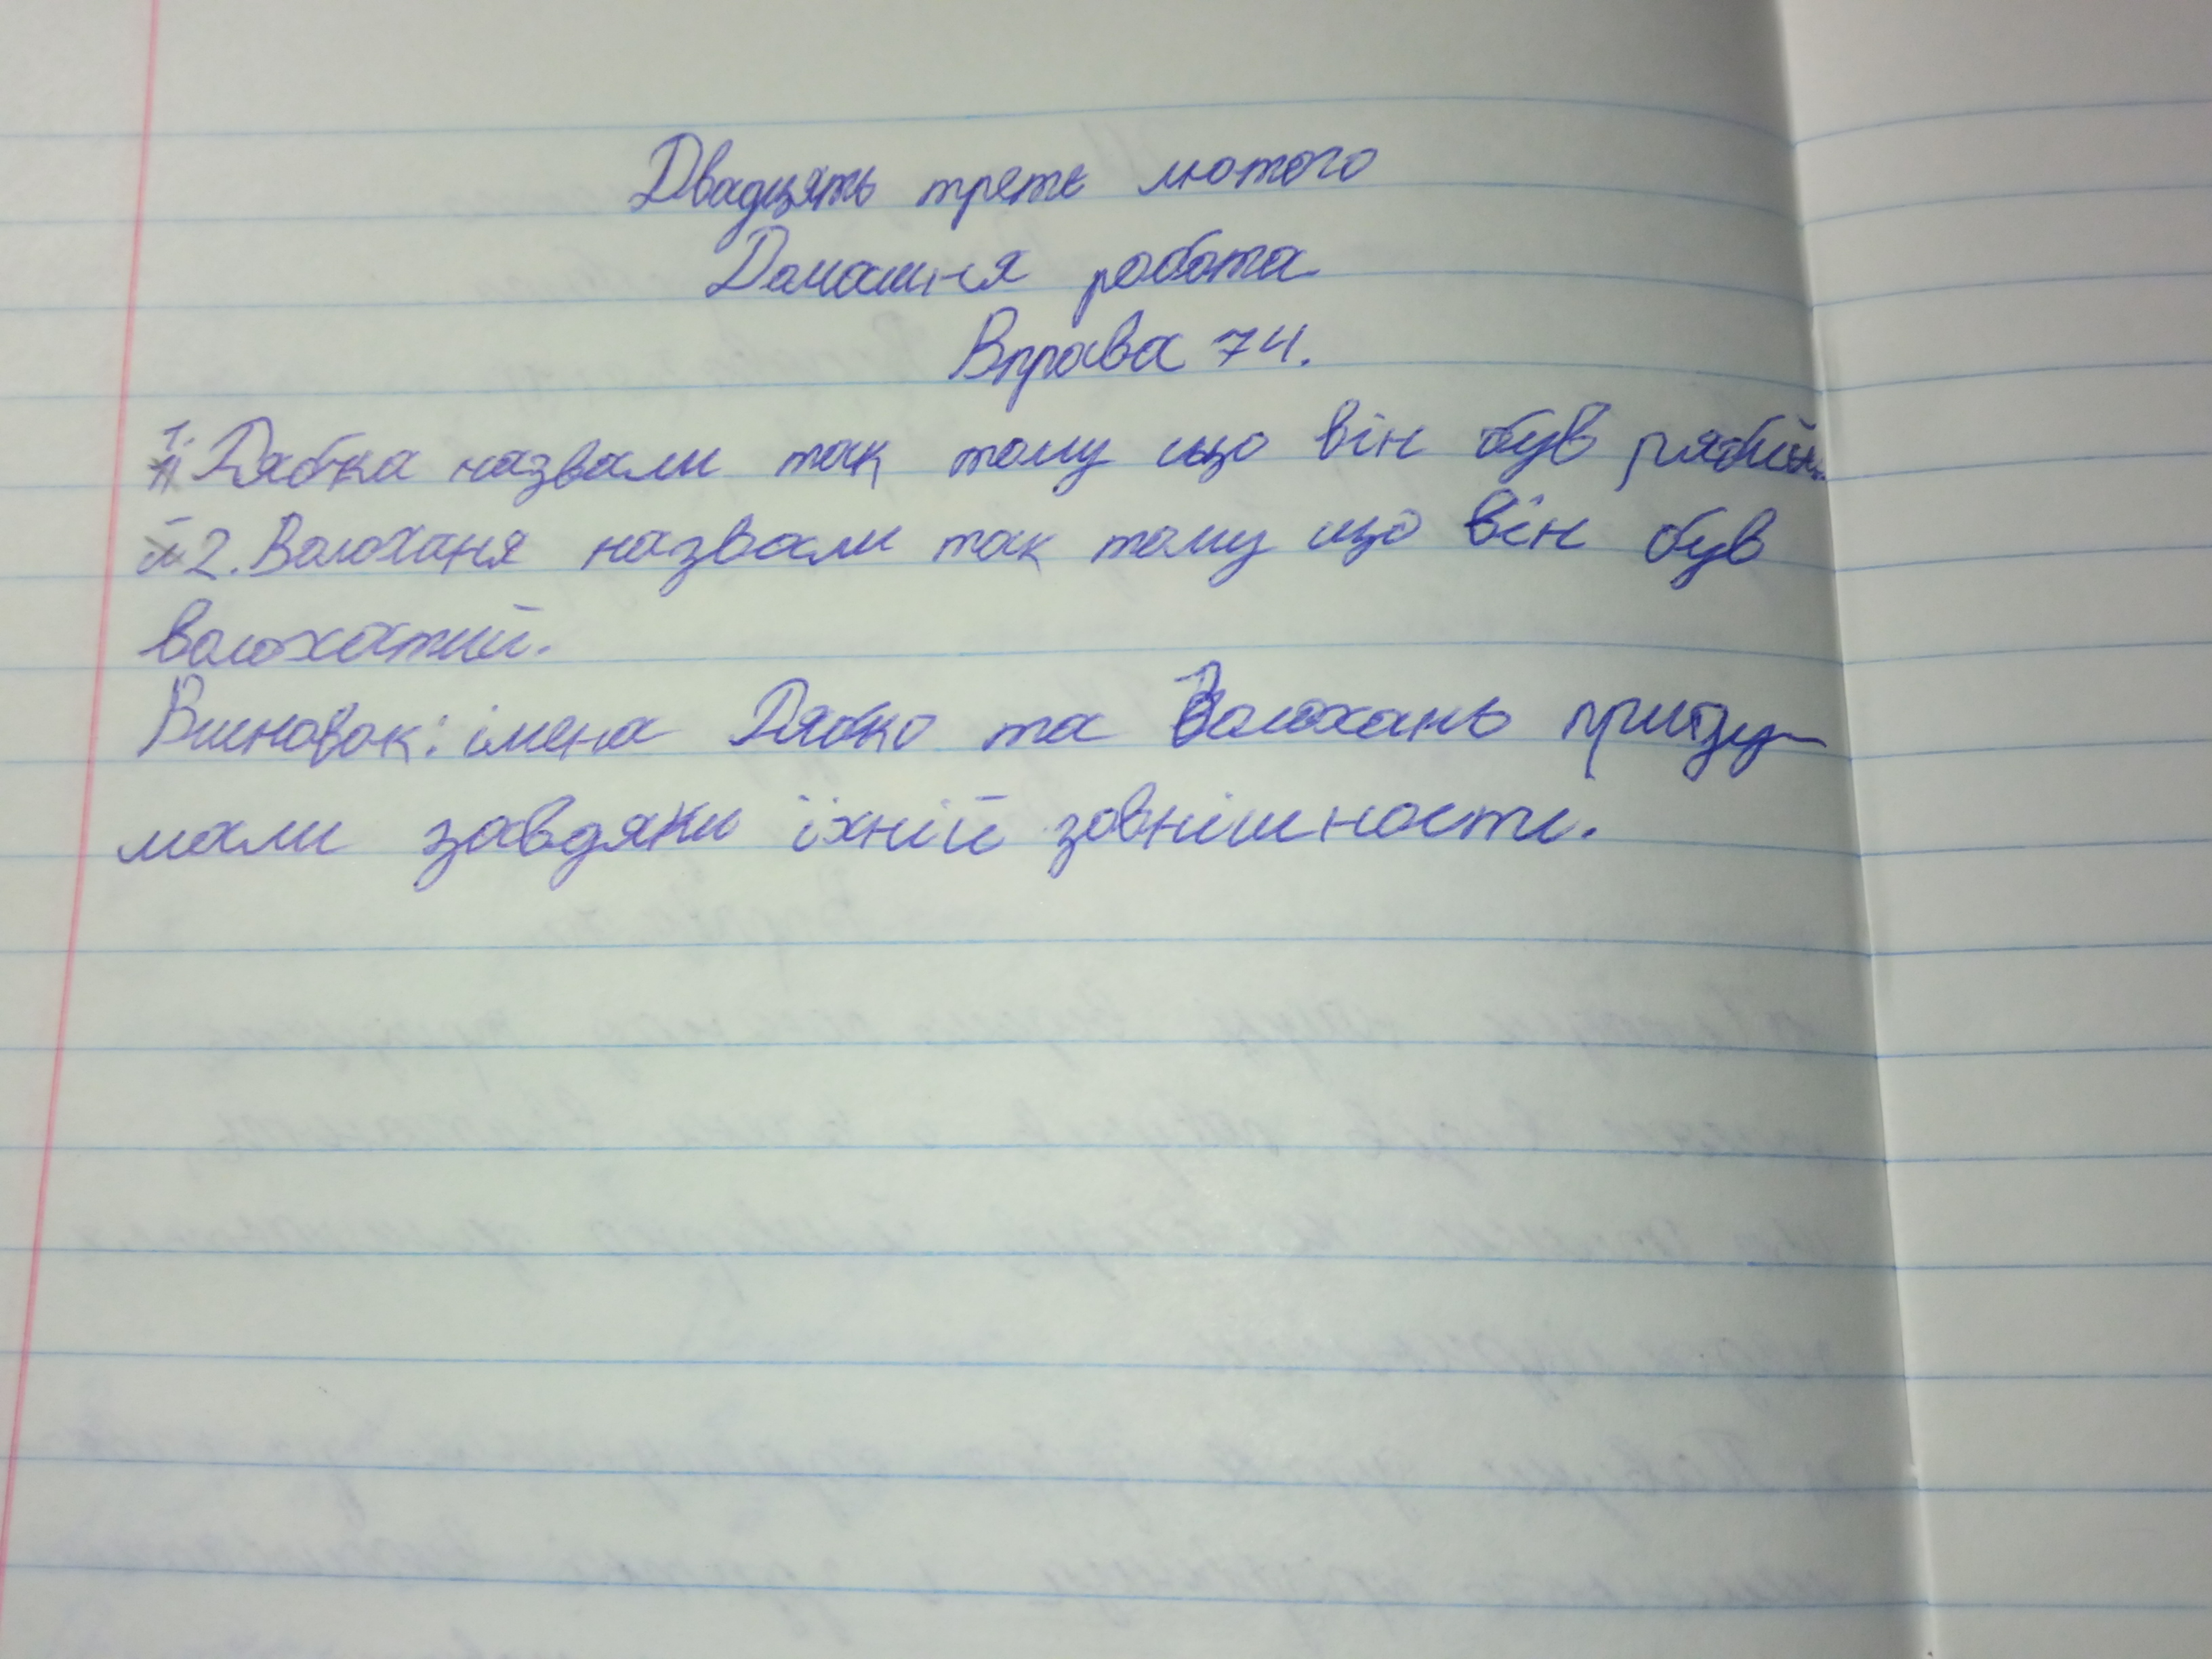 Двадцять третє лютого
Домашня робота
Вправа 74.
1. Рябка назвали так тому що він був рябий.
2. Волоханя назвали так тому що він був
волохатий.
Висновок: імена Рябко та Волохань приду-
мали завдяки їхній зовнішности.